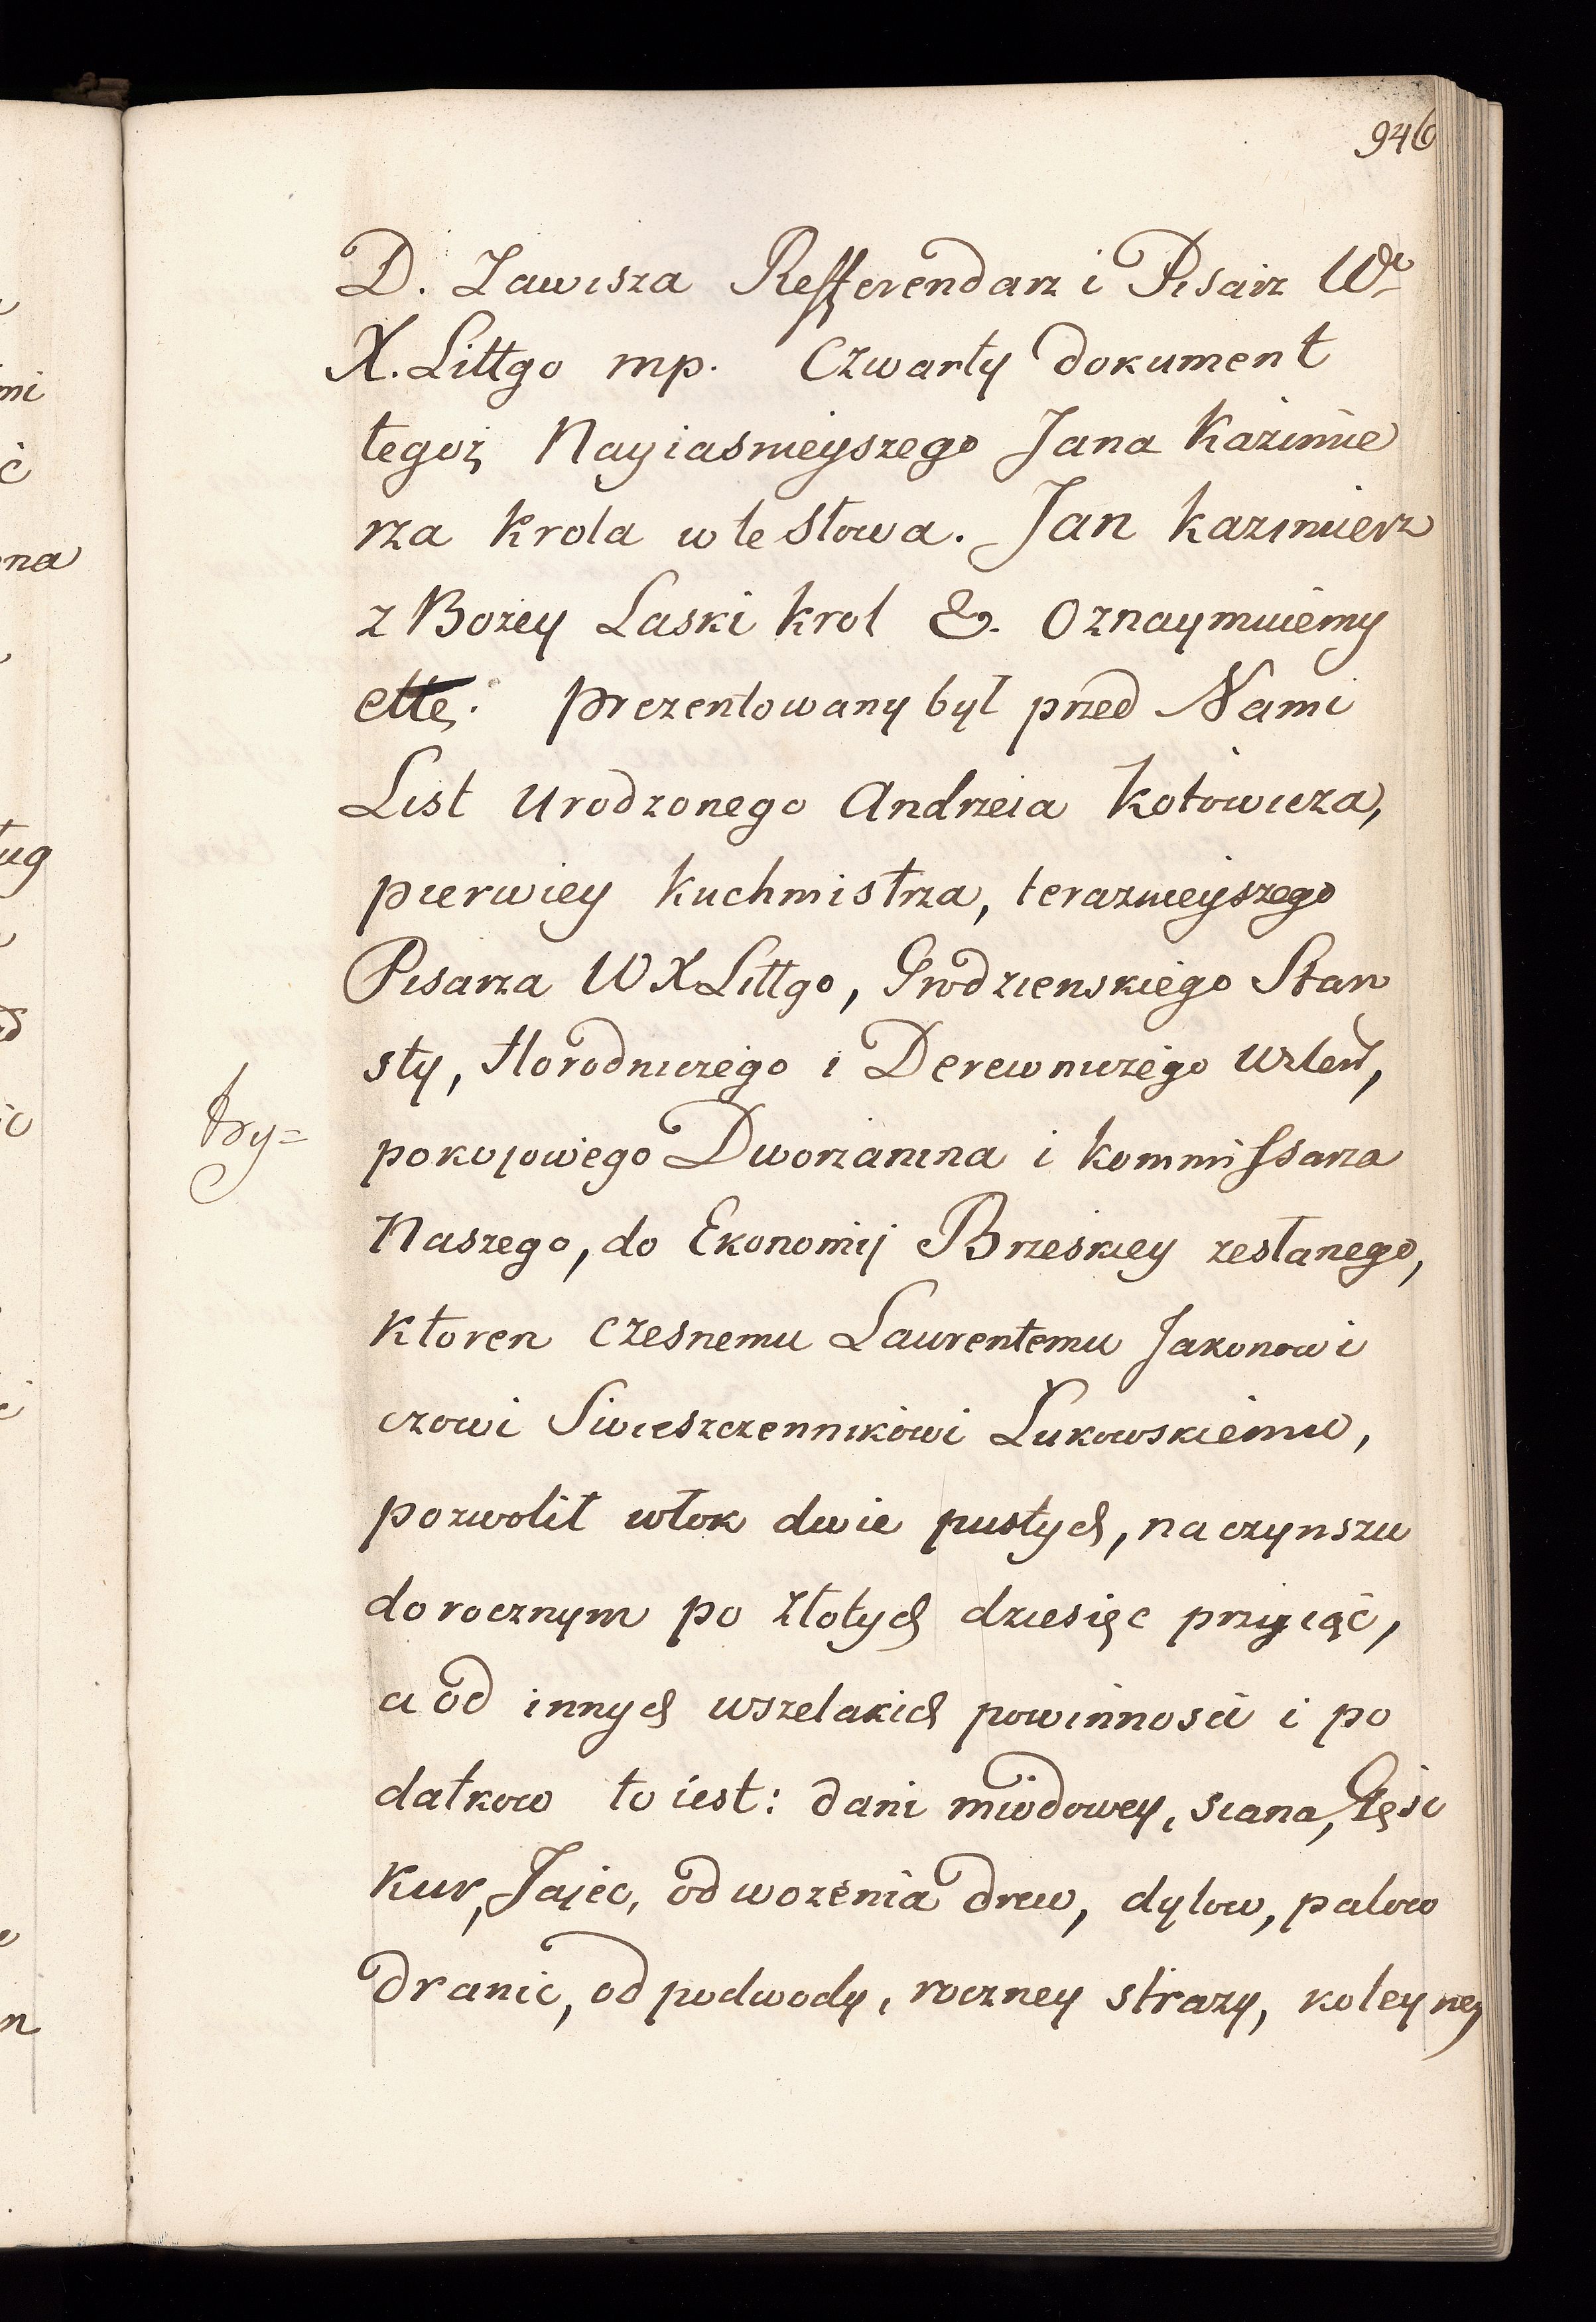 946
D. Zawisza Refferendarz i Pisarz W°
X. Littgo mp. Czwarty dokument
tegoż Nayiasnieyszego Jana Kazimie
rza Krola w te słowa. Jan Kazimierz
z Bożey Laski Krol &. Oznaymuiemy
ette. prezentowany był przed Nami
List Urodzonego Andrzeia Kotowicza,
pierwiey Kuchmistrza, teraznieyszego
Pisarza WXLittgo, Grodzienskiego Staro
sty, Horodniczego i Derewniczego
pokojowego Dworzanina i Kommissarza
Naszego, do Ekonomij Brzeskiey zesłanego,
Ktoren czesnemu Laurentemu Jakonowi
czowi Swieszczennikowi Łukowskiemu,
pozwolił włok dwie pustych, na czynszu
dorocznym po złotych dziesięc przyiąć,
a od innych wszelakich powinnosci i po
datkow to iest: dani miodowey, siana, Gęsi
Kur, Jajec, od wożenia drew, dylow, palow
dranic, od podwody, roczney strazy, koleyney